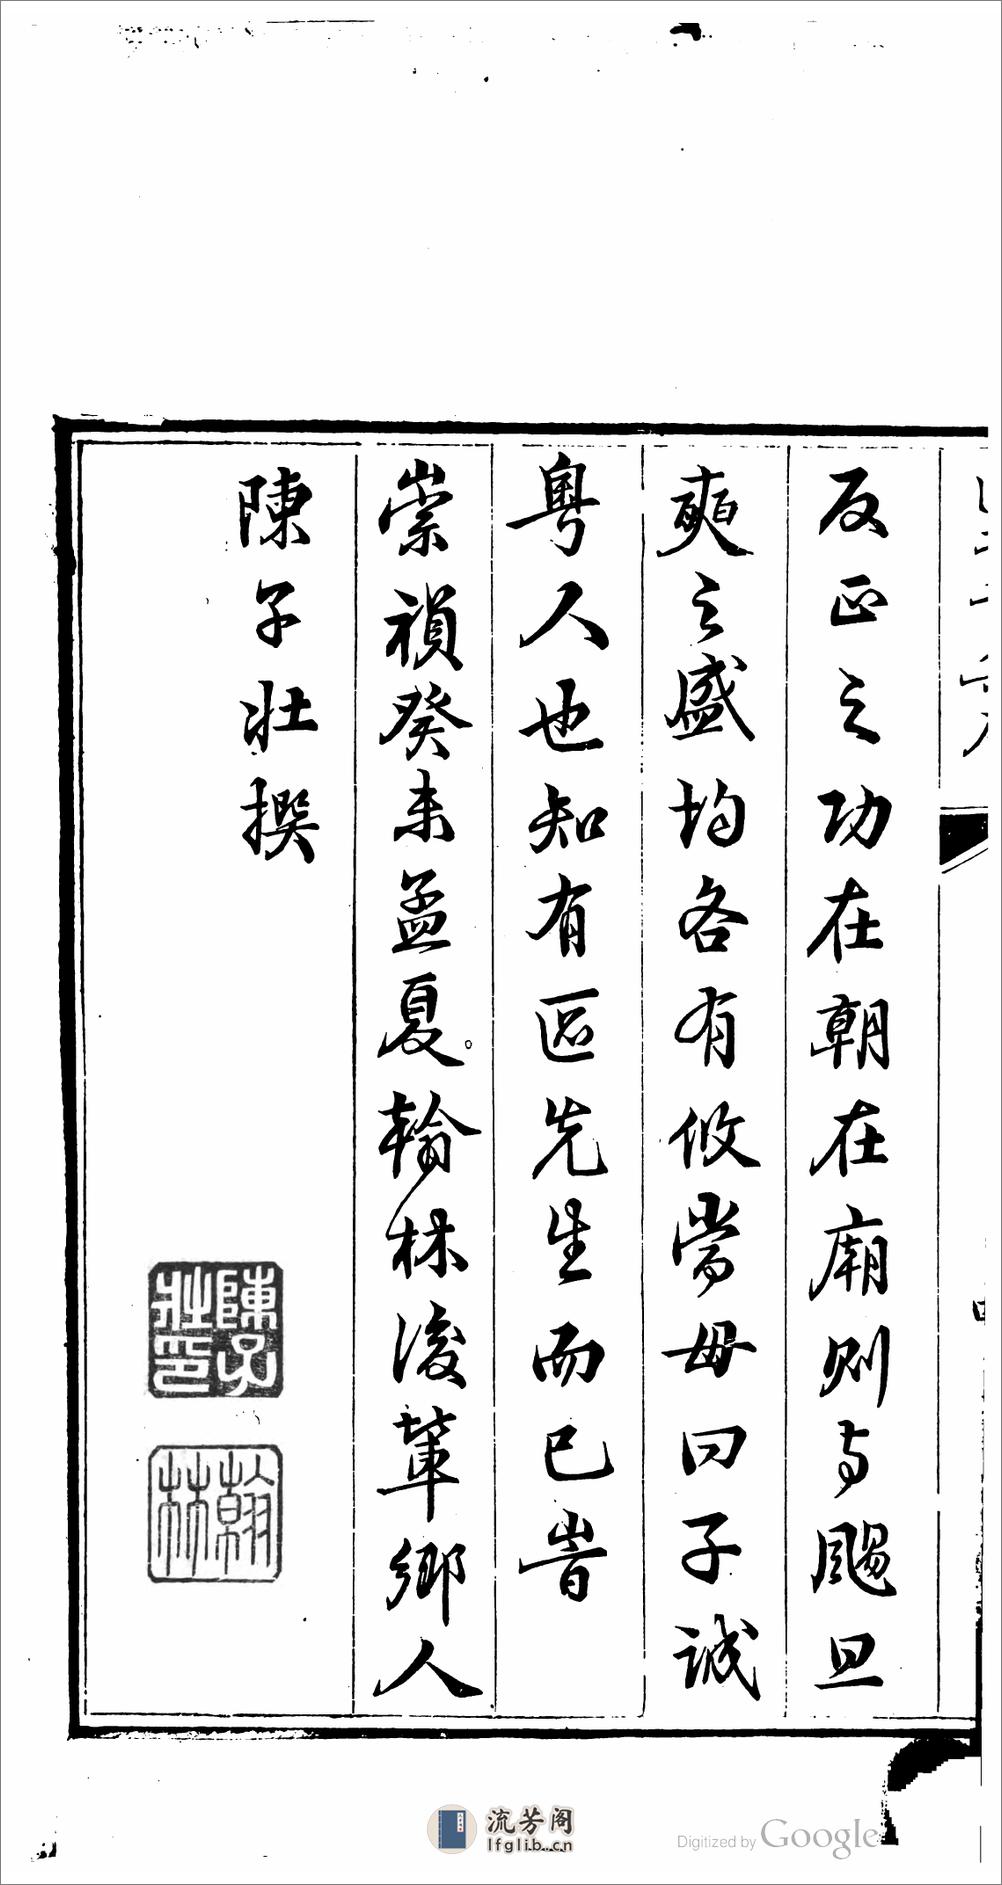 反正之功在朝在廟則与颺旦
奭之盛均各有攸當毋曰子誠
粵人也知有區先生而已旹
崇禎癸未孟夏翰林後輩鄉人
陳子壯撰
陳子壯印
翰林
流芳阁
lfglib.cn
Digitized by Google